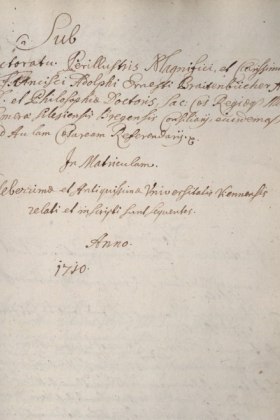 Sub
ctoratu Perillustris Magnifici, et
Francisci Adolphi Ernesti Braitenbücher
et Philosophiæ Doctoris, Sac: Cæs Regiæq
meræ Silesiensis Bregensis Consiliarij, eiusdemq
d Aulam Cæsaream Referendarij
In Matriculam
leberrimæ et Antiquissimæ Universitatis Viennensis
relati et inscripti sunt sequentes.
Anno.
1710.